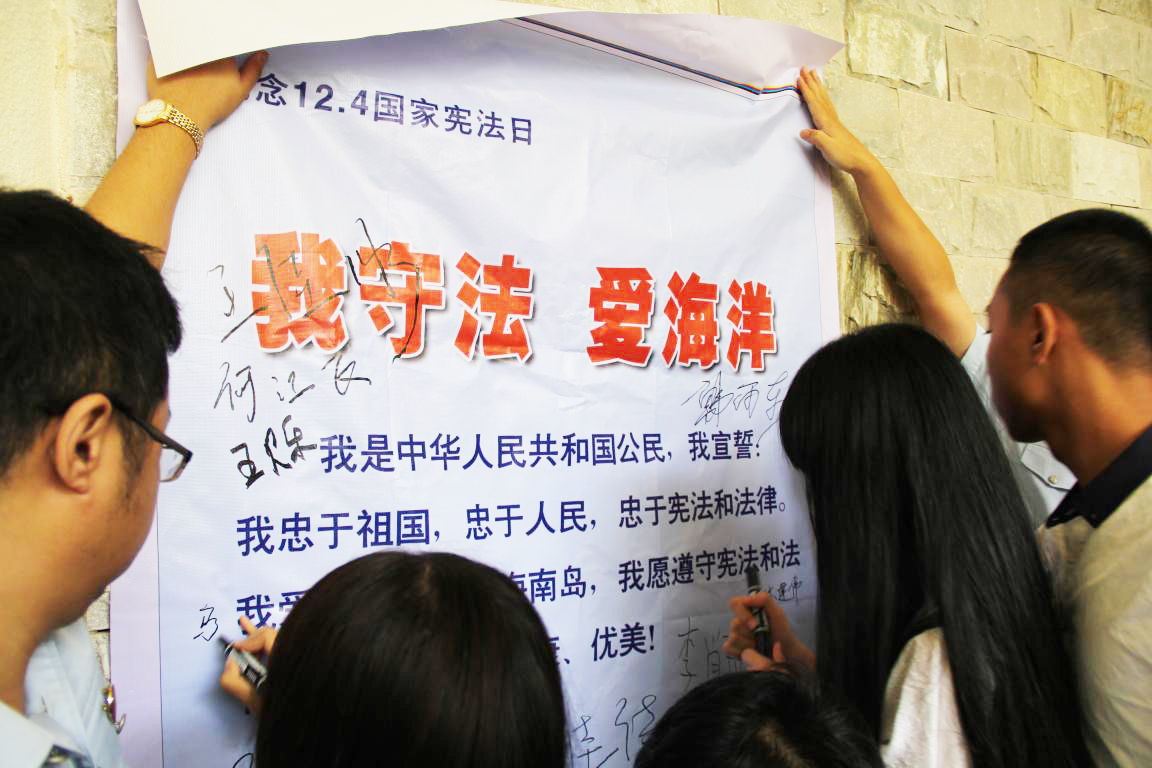 念12.4国家宪法日
我守法 爱海洋
何江
我是中华人民共和国公民，我宣誓：
我忠于祖国，忠于人民，忠于宪法和法律。
我爱 海南岛，我愿遵守宪法和法
、优美！
马
李